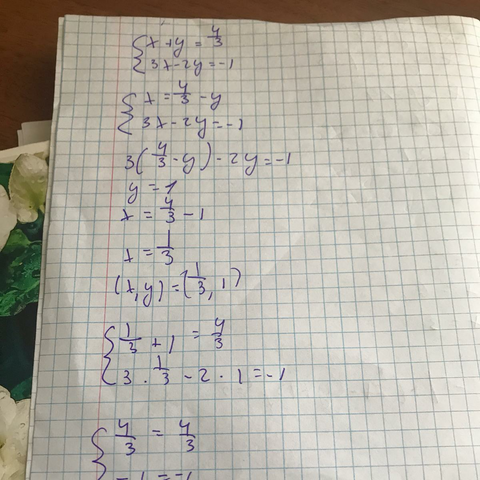 { x + y = 4/3
{ 3x - 2y = -1
{ x = 4/3 - y
{ 3x - 2y = -1
3(4/3 - y) - 2y = -1
y = 1
x = 4/3 - 1
x = 1/3
(x, y) = (1/3, 1)
{ 1/3 + 1 = 4/3
{ 3 · 1/3 - 2 · 1 = -1
{ 4/3 = 4/3
-1 = -1